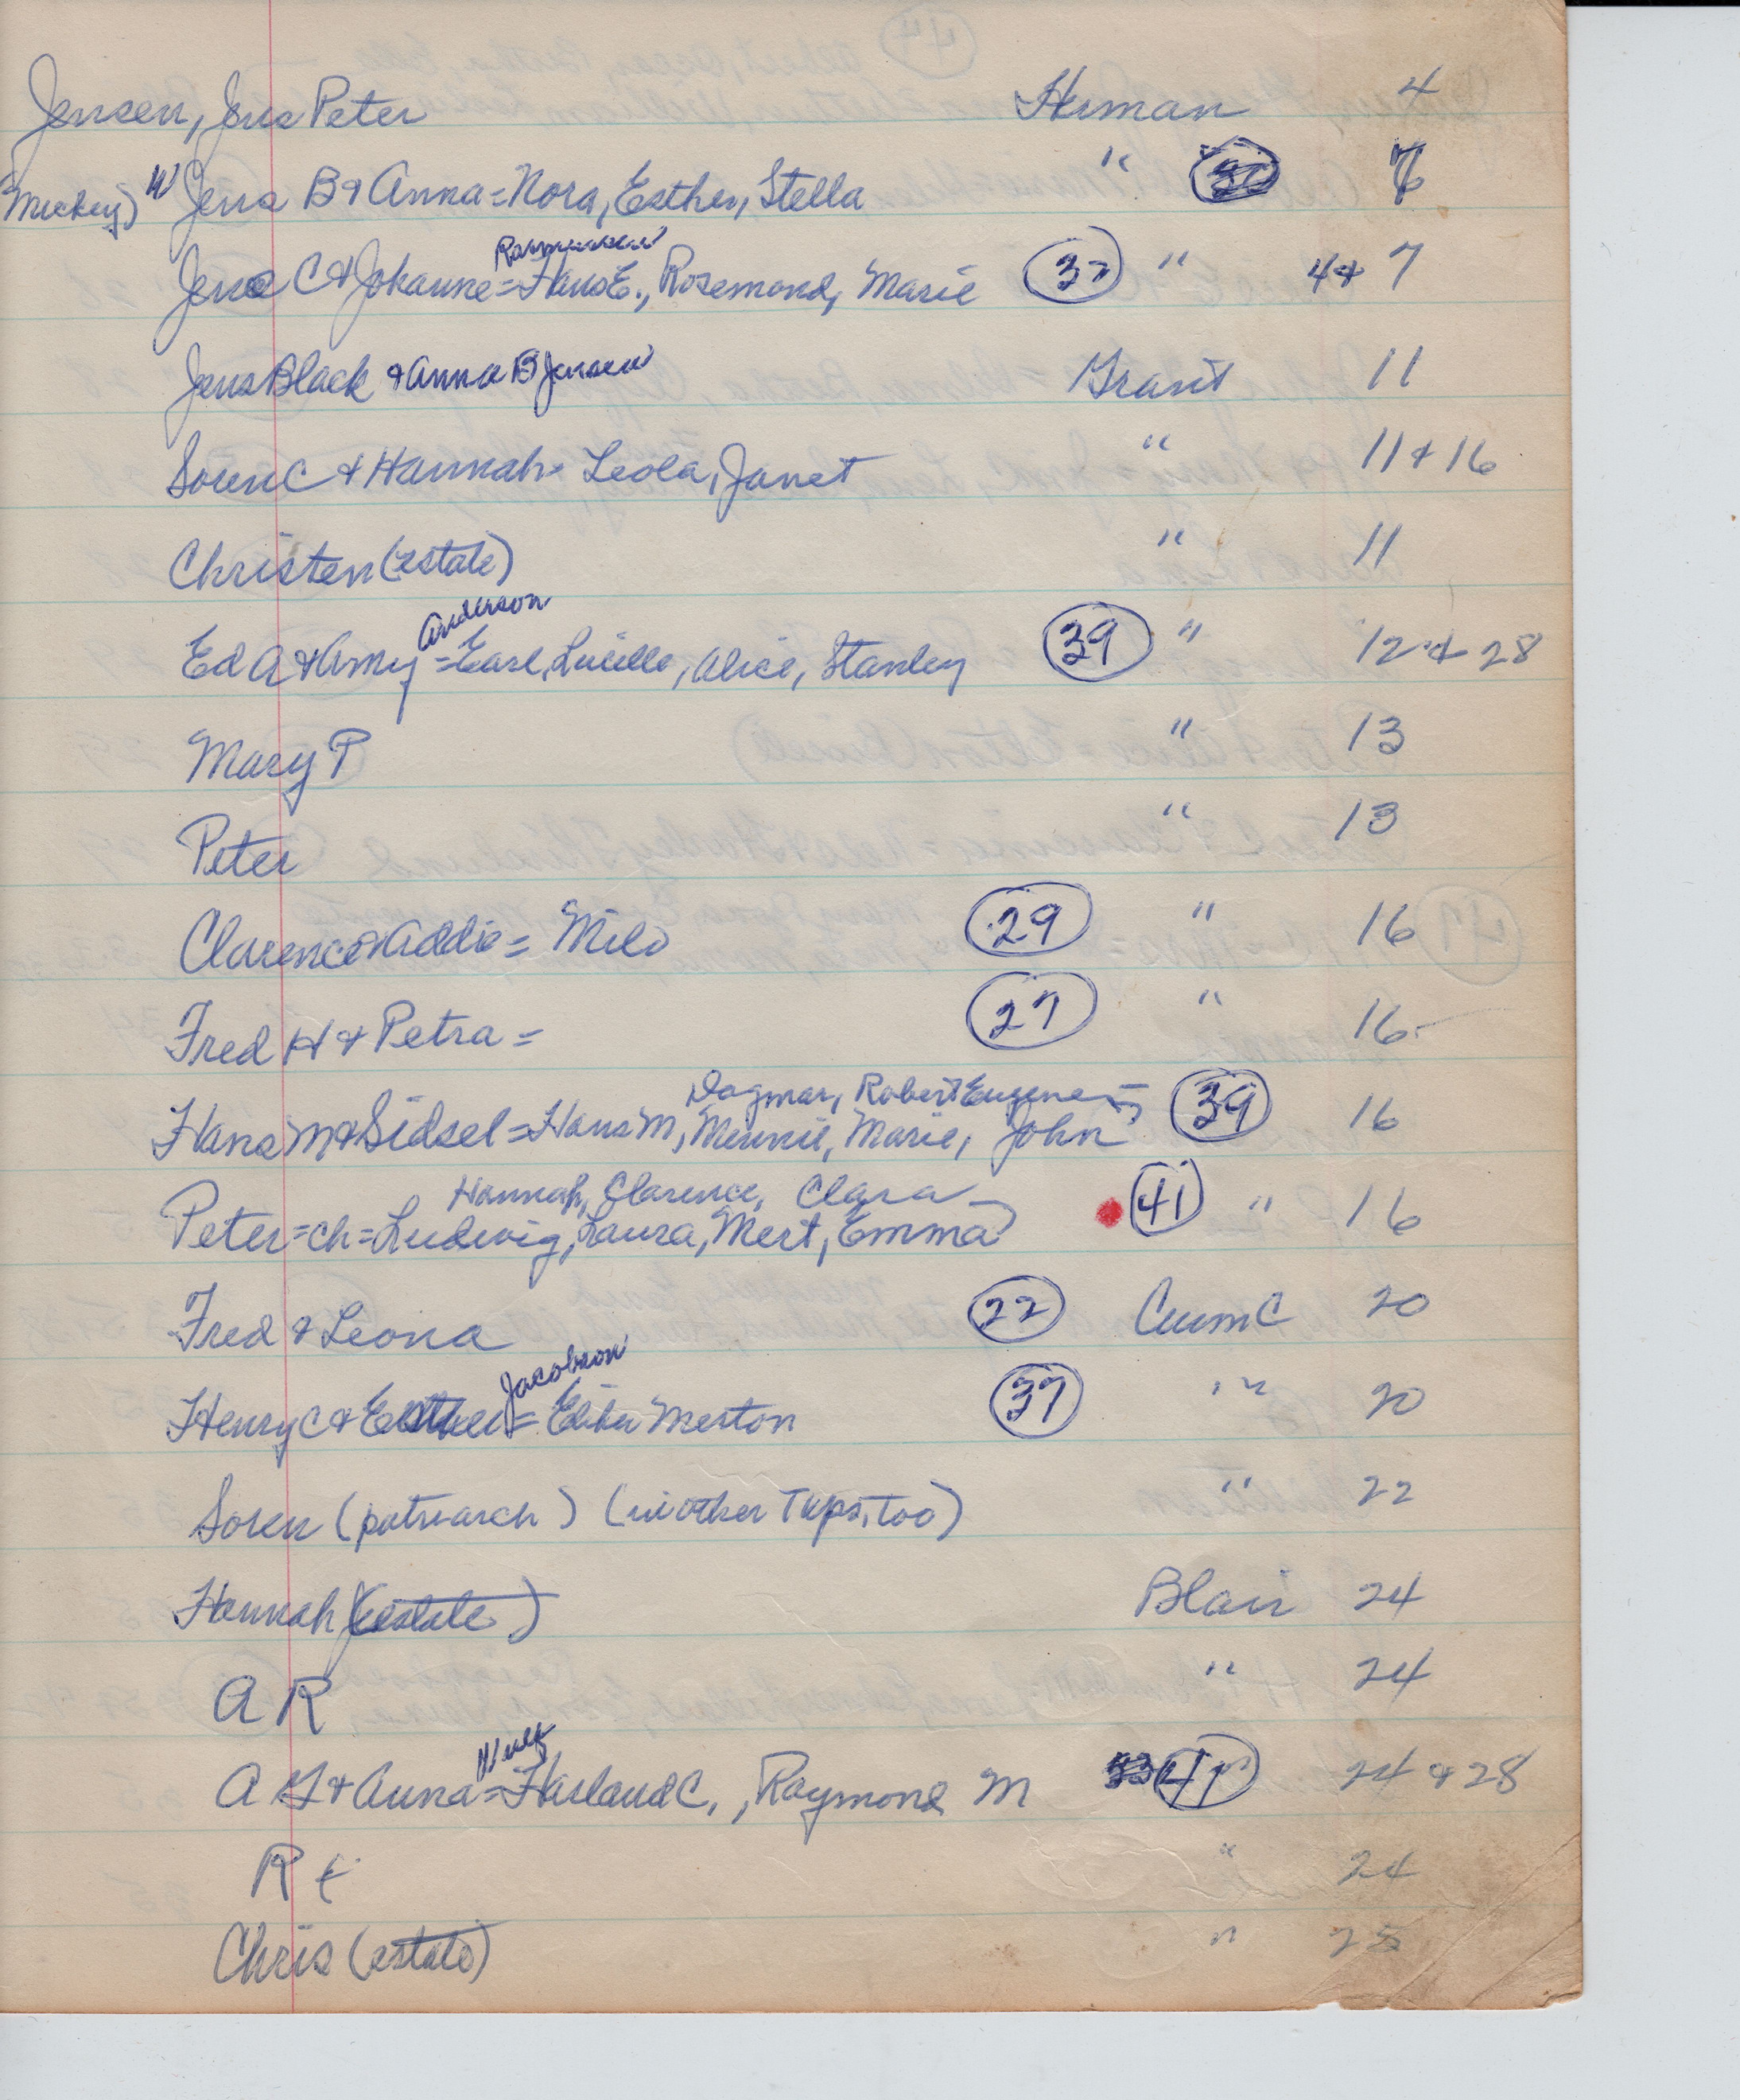 Jensen, Jens Peter Herman 4
(Mickey) W Jens B & Anna = Nora, Esther, Stella "
Rasmussen
Jens C & Johanne = Hans E., Rosemond, Marie 37 " 4 & 7
Jens Black & Anna B Jensen Grant 11
Soren C & Hannah = Leola, Janet " 11 & 16
Christen (estate) " 11
Anderson
Ed A & Amy = Earl, Lucille, Alice, Stanley 39 " 12 & 28
Mary P " 13
Peter " 13
Clarence & Addie = Milo 29 " 16
Fred H & Petra = 27 " 16
Dagmar, Robert Eugene
Hans M & Sidsel = Hans M, Minnie, Marie, John 39 16
Hannah, Clarence, Clara
Peter = ch = Ludwig, Laura, Mert, Emma 41 " 16
Fred & Leona 22 Cum C 20
Jacobson
Henry C & Esther = Merton 37 " 20
Soren (patriarch) (in other Twps, too) " 22
Hannah (estate) Blair 24
A R " 24
A G & Anna = Harland C., Raymond M 41 " 24 & 28
R " 24
Chris (estate) " 25